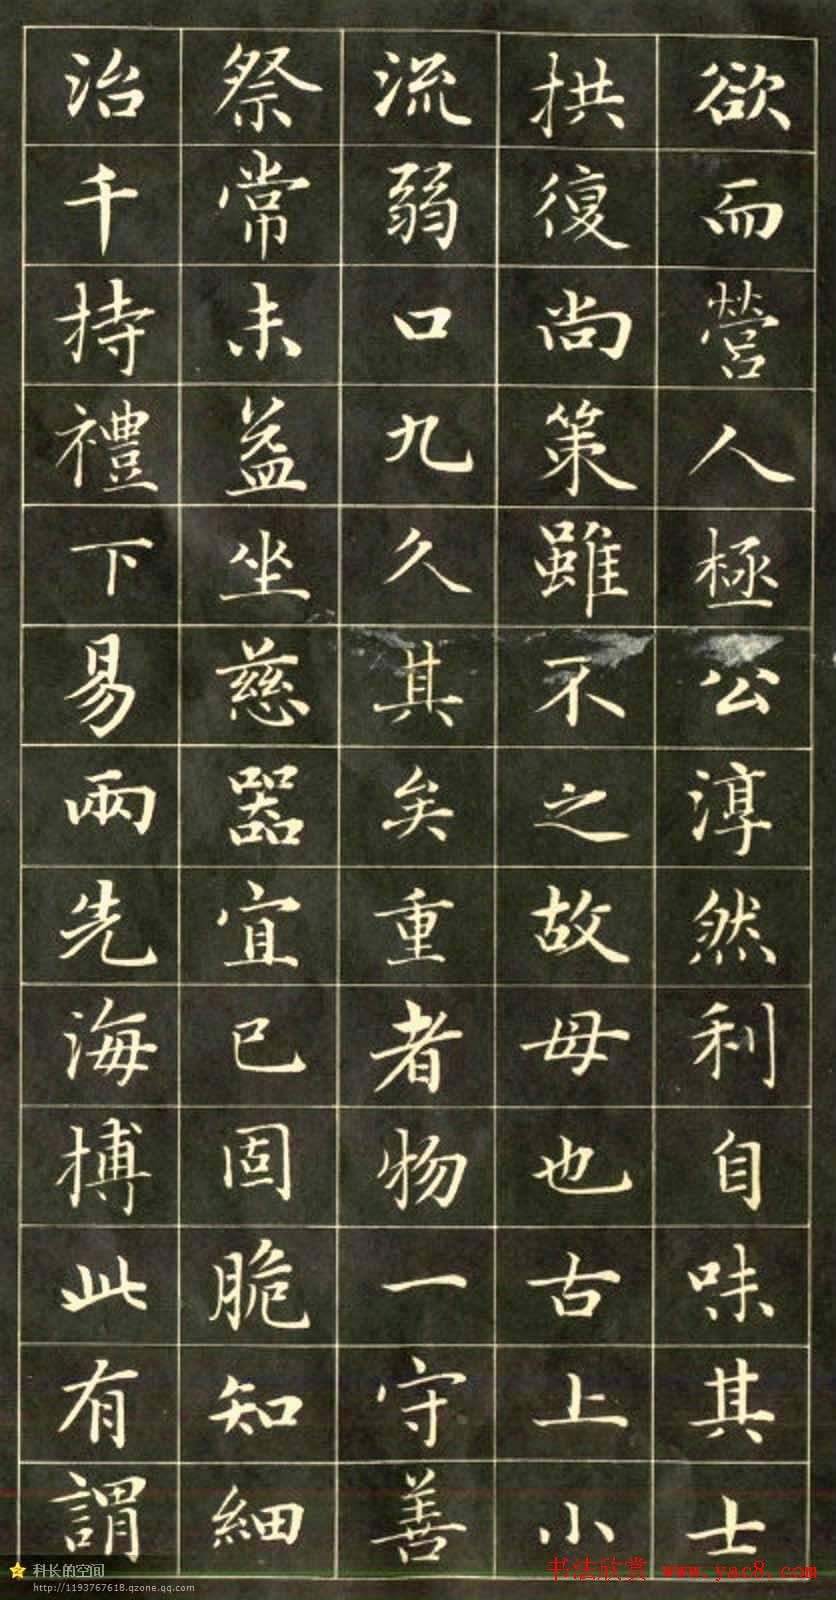 欲而營人極公淳然利自味其士
拱復尚策雖不之故毋也古上小
流弱口九久其矣重者物一守善
祭常未益坐慈器宜已固脆知細
治千持禮下易兩先海搏此有謂
科长的空间
http://1193767618.qzone.qq.com
书法欣赏 www.yac8.com